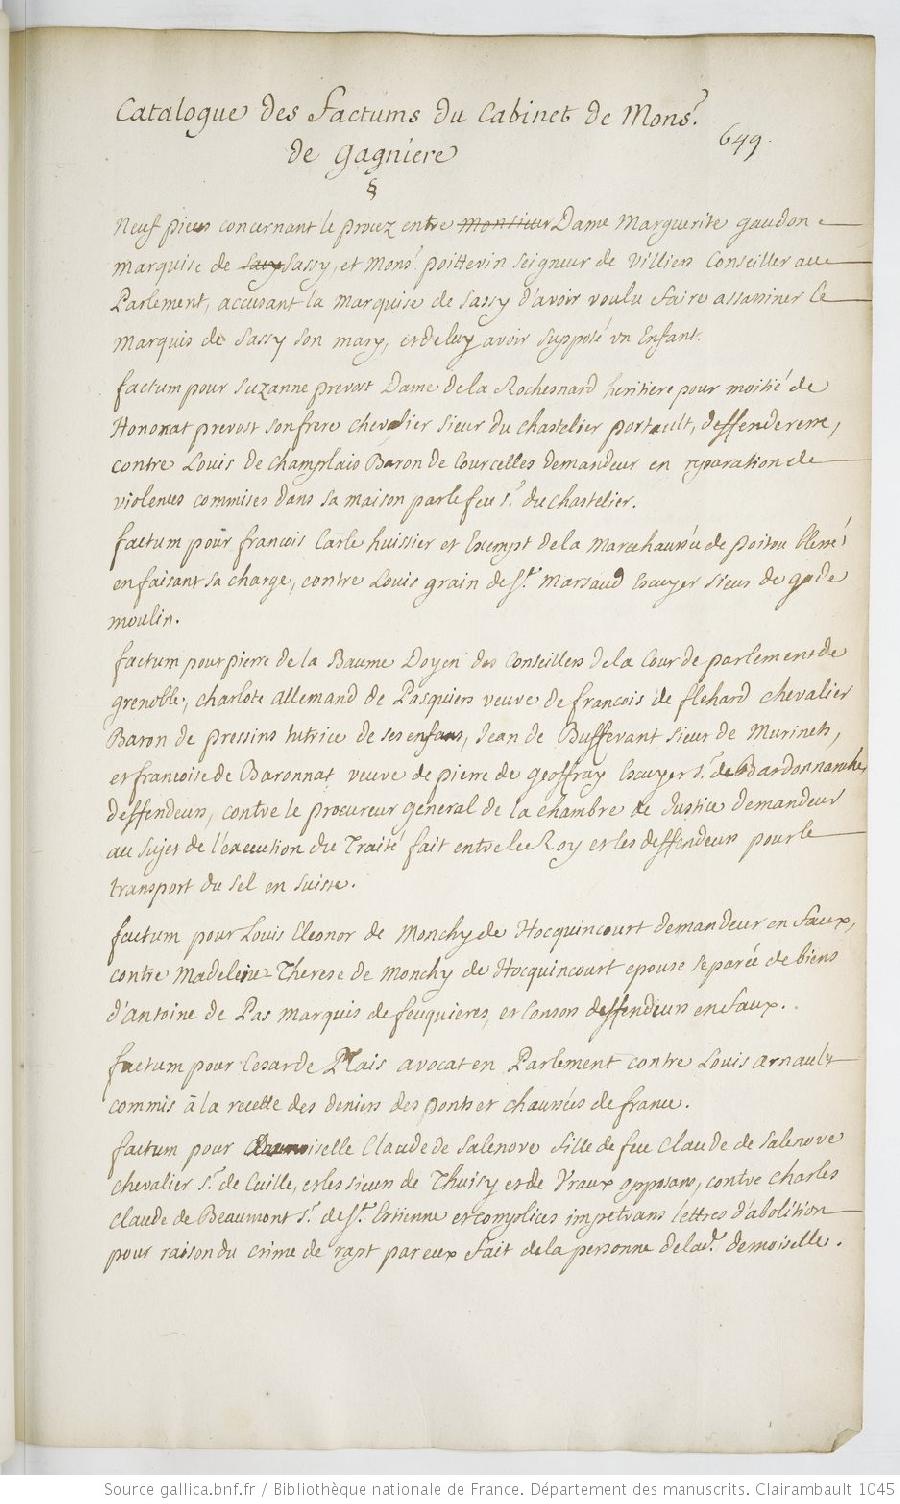 Catalogue des Factums du Cabinet de Mons.r
649.
de gagniere
§
Neuf pieces concernant le procez entre Monsieur Dame Marguerite gaudon
marquise de Sassy, et Mons.r poittevin seigneur de Villiers Conseiller au
Parlement, accusant la Marquise de Sassy d'avoir voulu faire assassiner le
Marquis de Sassy son mary, et de luy avoir supposé un Enfant.
factum pour Suzanne prevost Dame de la Rochesnard heritiere pour moitié de
Honorat prevost son frere chevalier sieur du chastelier portault, deffenderesse,
contre Louis de champlais Baron de Courcelles demandeur en reparation de
violences commises dans sa maison par le feu s.r du chastelier.
factum pour francois Carle huissier et Exempt de la Marechaussée de poitou blessé
en faisant sa charge, contre Louis grain de S.t Marsaud Escuyer sieur de gade
moulin.
factum pour pierre de la Baume Doyen des Conseillers de la Cour de parlement de
grenoble, charlote allemand de Pasquiers veuve de francois de flehard chevalier
Baron de pressins tutrice de ses enfans, Jean de Buffevant sieur de Murinets,
et francoise de Baronnat veuve de pierre de geoffray Escuyer s.r de Bardonnanche
deffendeurs, contre le procureur general de la chambre de Justice demandeur
au sujet de l'execution du Traité fait entre le Roy et les deffendeurs pour le
transport du sel en suisse.
factum pour Louis Eleonor de Monchy de Hocquincourt demandeur en faux,
contre Madeleine-Therese de monchy de Hocquincourt epouse separée de biens
d'Antoine de Pas marquis de feuquieres, et Consors deffendeurs en faux.
factum pour Cesar de Plais avocat en Parlement contre Louis arnault
commis à la recette des deniers des ponts et chaussées de france.
factum pour Damoiselle Claude de Salenove fille de feu Claude de Salenove
chevalier s.r de Cuille, et les sieurs de Thuisy et de Vraux opposans, contre charles
claude de Beaumont s.r de S.t Estienne et complices impetrans lettres d'abolition
pour raison du crime de rapt par eux fait de la personne de lad. demoiselle.
Source gallica.bnf.fr / Bibliothèque nationale de France. Département des manuscrits. Clairambault 1045